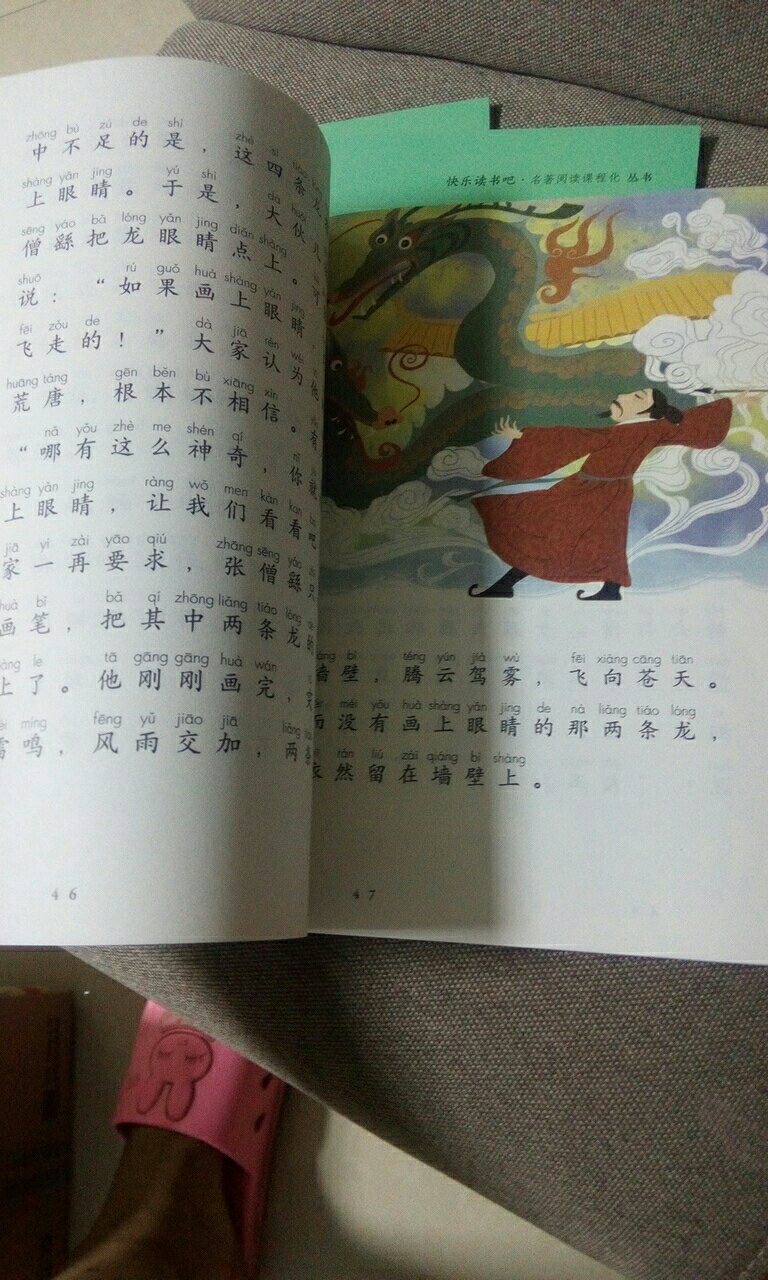 zhōng bù zú de shì zhè sì
中不足的是，这四条
shàng yǎn jing yú shì dà huǒ
上眼睛。于是，大伙儿
sēng yáo bǎ lóng yǎn jing diǎn shàng
僧繇把龙眼睛点上。
shuō rú guǒ huà shàng yǎn jing
说：“如果画上眼睛，
fēi zǒu de dà jiā rèn wéi
飞走的！”大家认为他
huāng táng gēn běn bù xiāng xìn
荒唐，根本不相信。
nǎ yǒu zhè me shén qí nǐ
“哪有这么神奇，你
shàng yǎn jing ràng wǒ men kàn kan ba
上眼睛，让我们看看吧
jiā yí zài yāo qiú zhāng sēng yáo
家一再要求，张僧繇只
huà bǐ bǎ qí zhōng liǎng tiáo lóng
画笔，把其中两条龙的
le tā gāng gāng huà wán
上了。他刚刚画完，
míng fēng yǔ jiāo jiā liǎng
雷鸣，风雨交加，两条
46
快乐读书吧·名著阅读课程化 丛书
bì téng yún jià wù fēi xiàng cāng tiān
墙壁，腾云驾雾，飞向苍天。
méi yǒu huà shàng yǎn jing de nà liǎng tiáo lóng
而没有画上眼睛的那两条龙，
rán liú zài qiáng bì shàng
依然留在墙壁上。
47